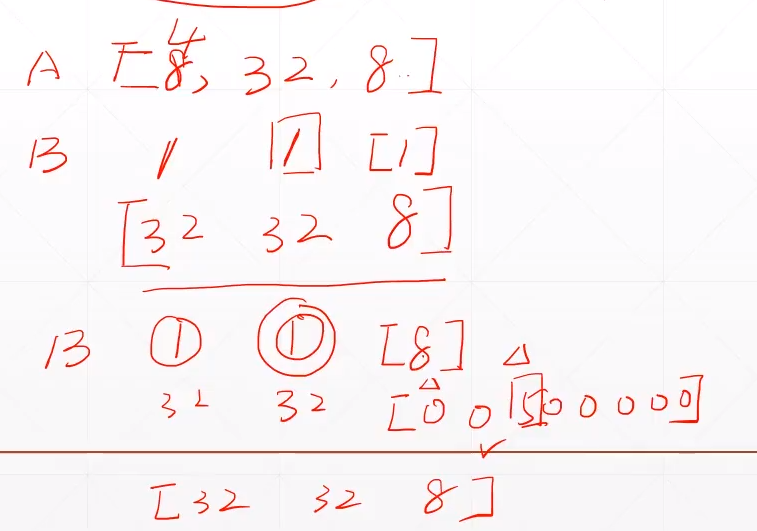 A [8, 32, 8]
4
B 1 [1] [1]
[32 32 8]
B 1 1 [8]
32 32 [0 0 15 0 0 0 0 0]
[32 32 8]